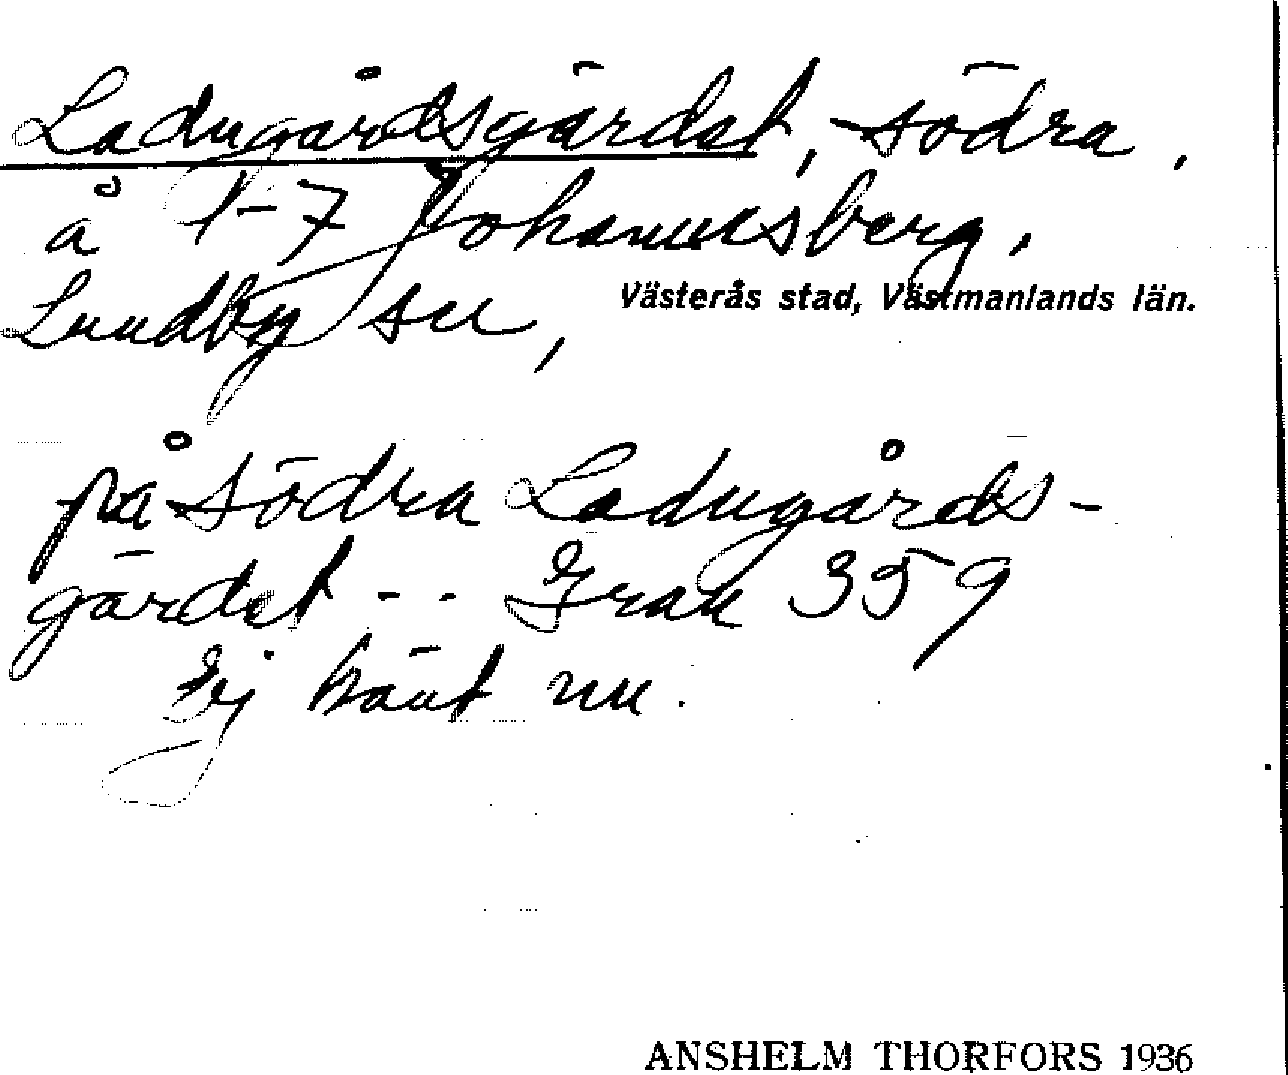 Ladugårdsgärdet, södra,
å 1-7 Johannesberg,
Lundby sn, Västerås stad, Västmanlands län.
på södra Ladugårds-
gärdet - - Gran 359
Ej känt nu.
ANSHELM THORFORS 1936